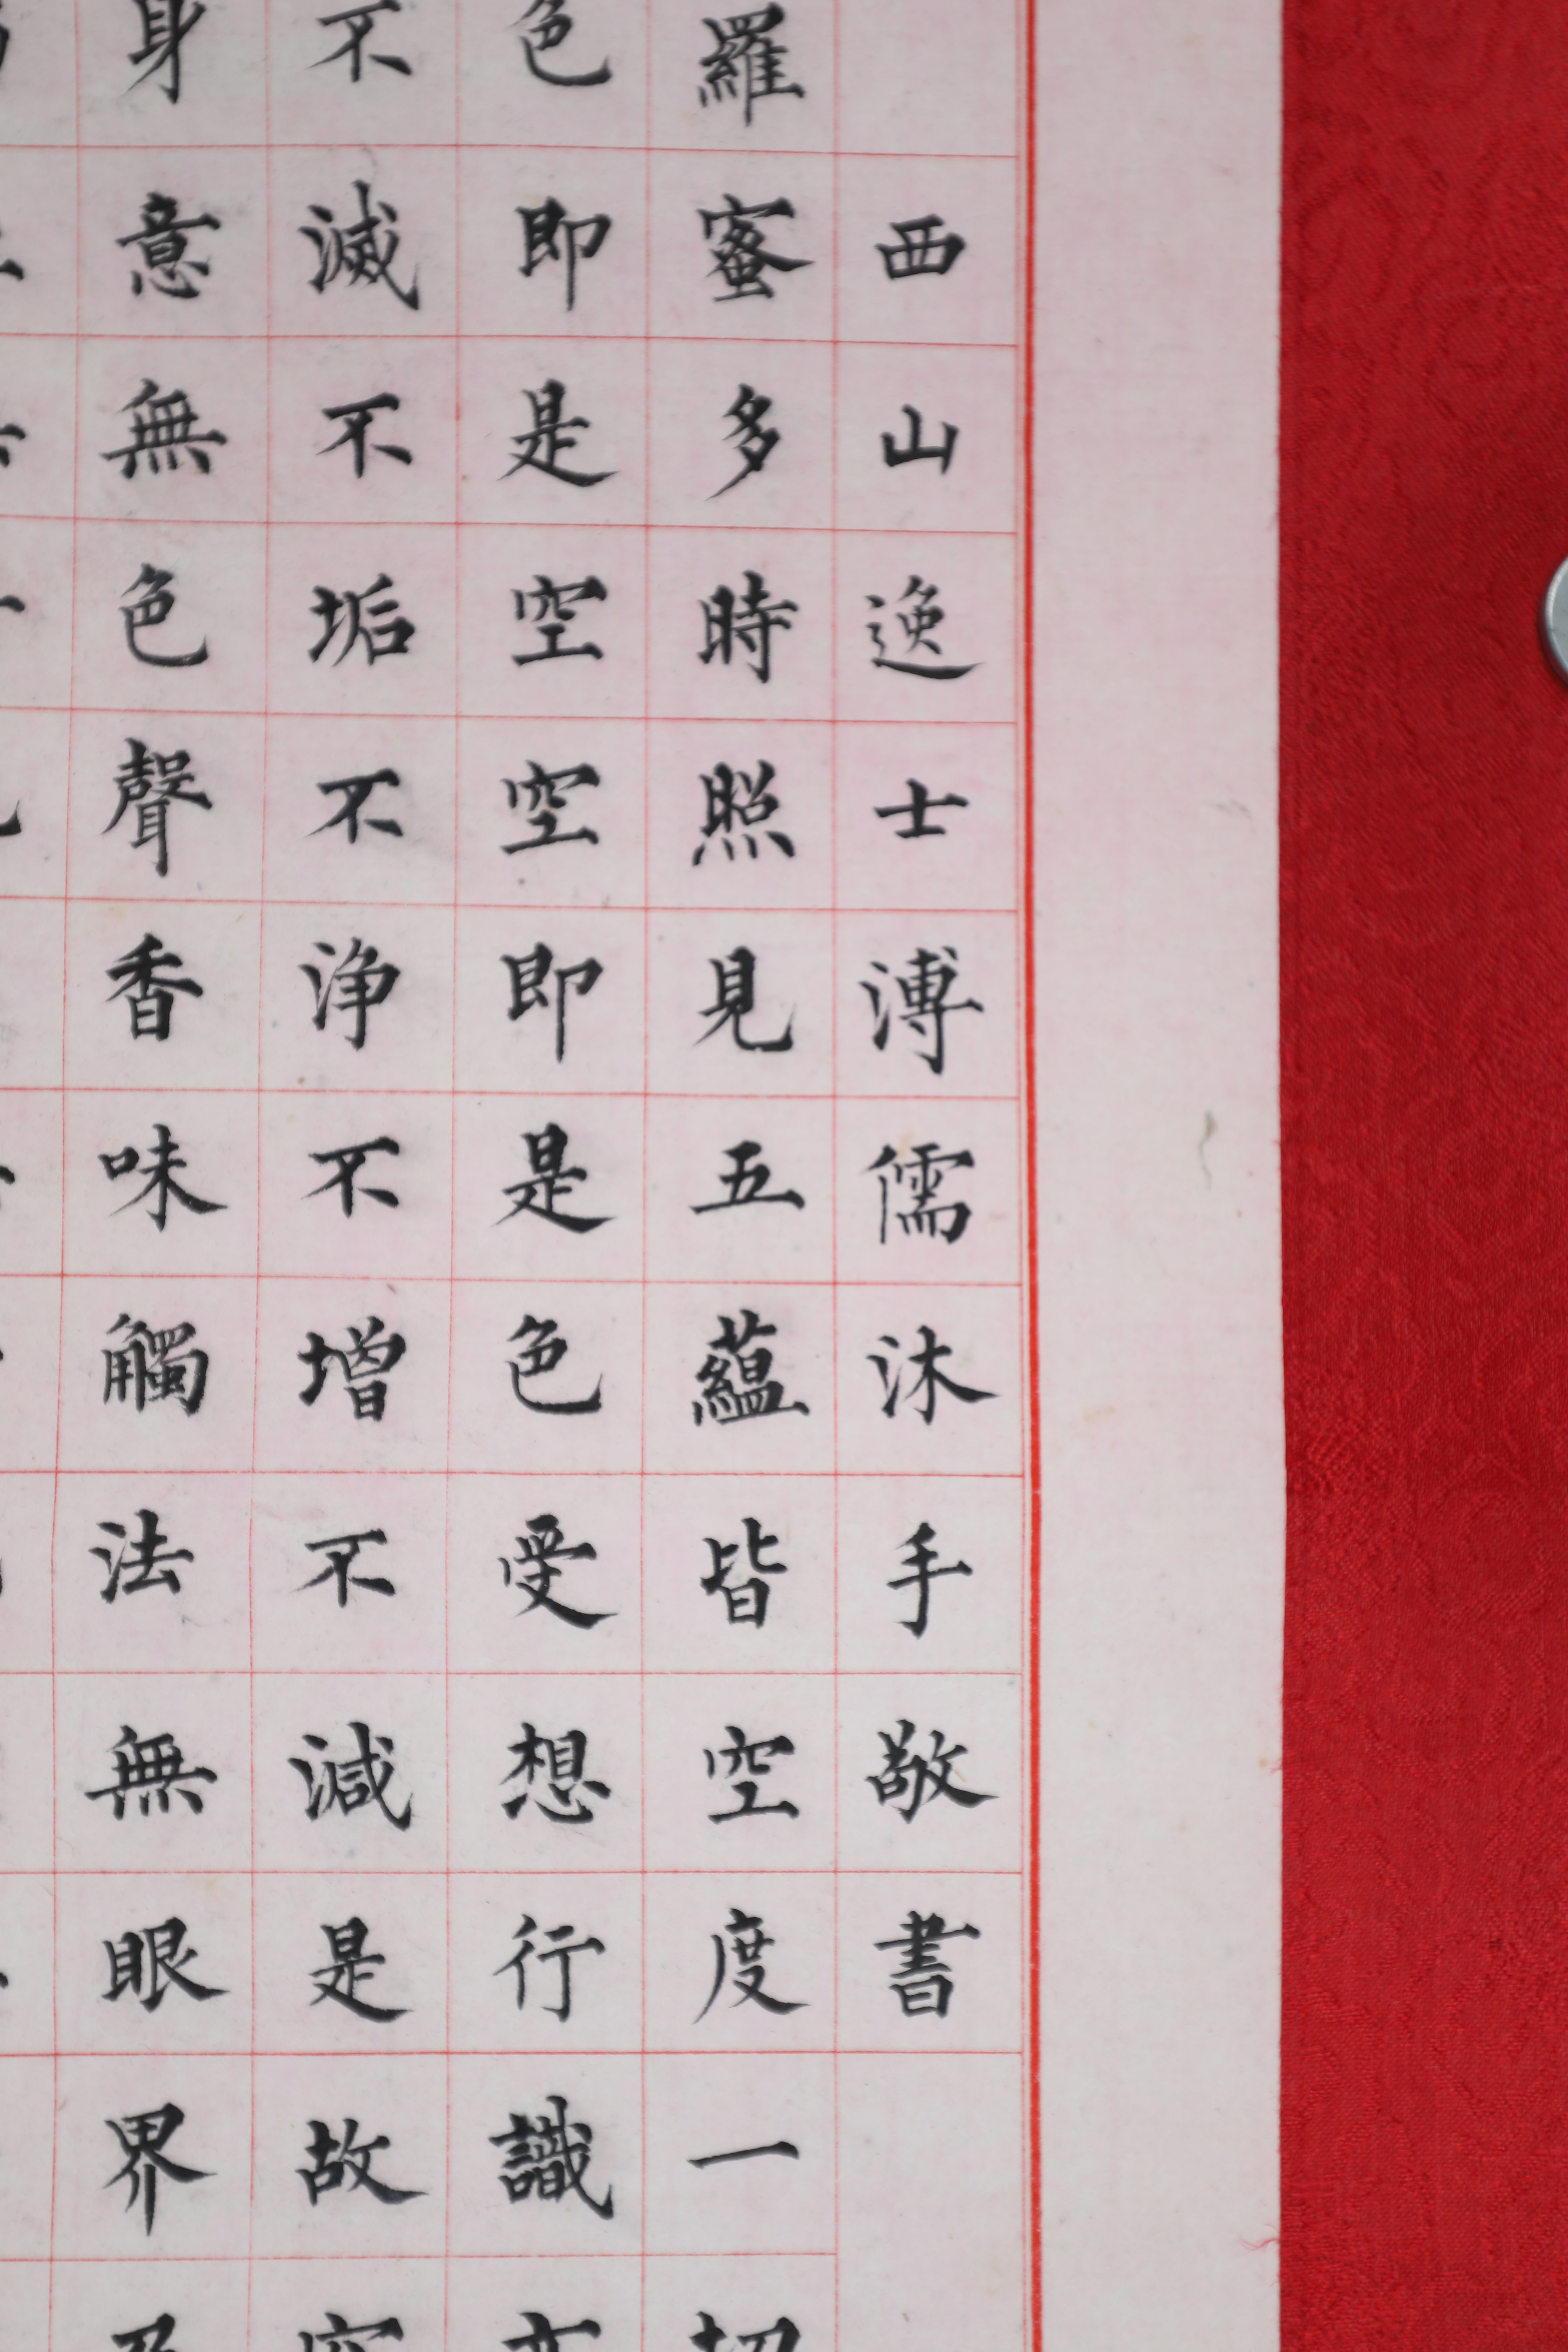 西山逸士溥儒沐手敬書
羅蜜多時照見五蘊皆空度一切
色即是空空即是色受想行識亦
不滅不垢不净不增不減是故空
身意無色聲香味觸法無眼界乃